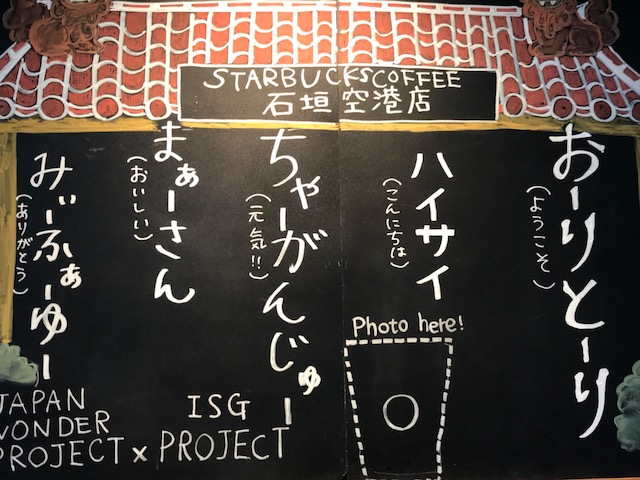 STARBUCKS COFFEE
石垣空港店
おーりとーり
(ようこそ)
ハイサイ
(こんにちは)
ちゃーがんじゅー
(元気!!)
まぁーさん
(おいしい)
みーふぁーゆー
(ありがとう)
Photo here!
JAPAN
WONDER
PROJECT × ISG
PROJECT